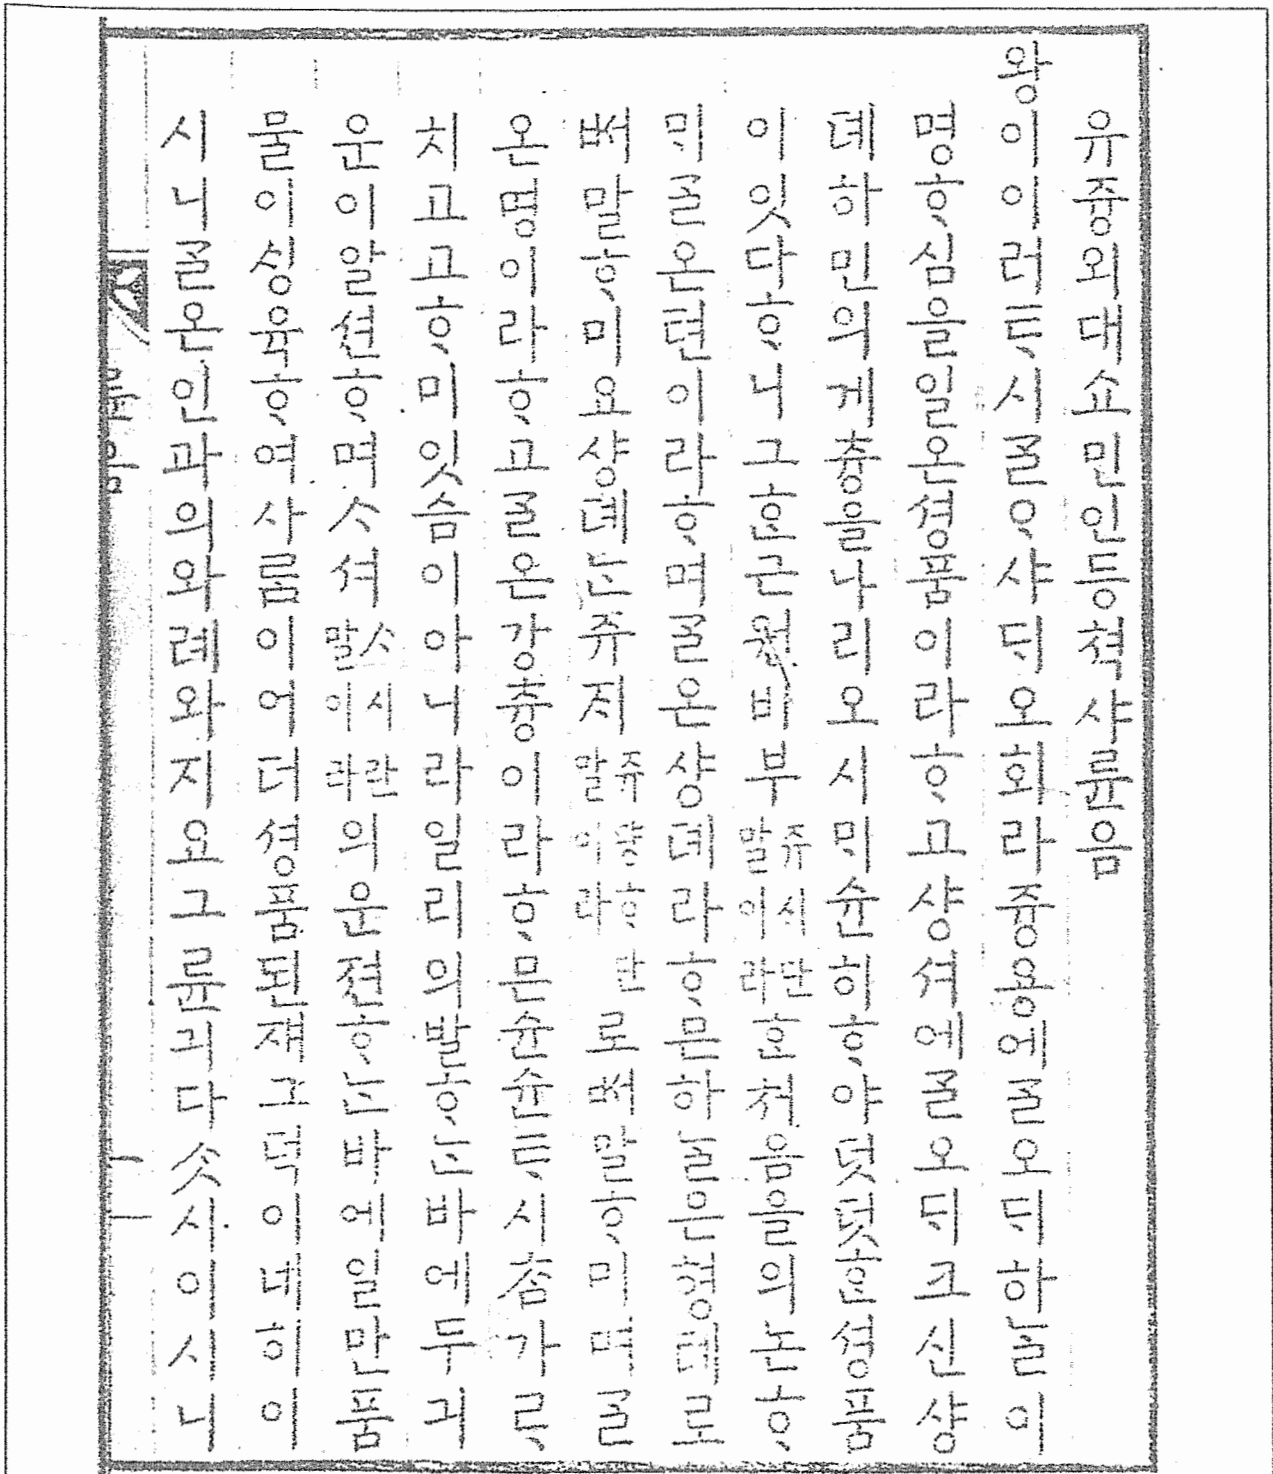 유즁외대쇼민인등쳑샤륜음
왕이이러ᄐᆞ시ᄀᆞᆯᄋᆞ샤ᄃᆡ오회라즁용에ᄀᆞᆯ오ᄃᆡ하ᄂᆞᆯ이
명ᄒᆞ심을일온셩품이라ᄒᆞ고샹셔에ᄀᆞᆯ오ᄃᆡ크신샹
뎨하민의게츙을나리오시ᄆᆡ슌히ᄒᆞ야덧덧ᄒᆞᆫ셩품
이잇다ᄒᆞ니그ᄒᆞᆫ근원비부쥬시란말이라ᄒᆞᆫ쳐음을의논ᄒᆞ
ᄆᆡᄀᆞᆯ온텬이라ᄒᆞ며ᄀᆞᆯ온샹뎨라ᄒᆞ믄하ᄂᆞᆯ은형톄로
ᄡᅥ말ᄒᆞ미요샹뎨ᄂᆞᆫ쥬ᄌᆡ쥬쟝ᄒᆞ란말이라로ᄡᅥ말ᄒᆞ미며ᄀᆞᆯ
온명이라ᄒᆞ고ᄀᆞᆯ온강츙이라ᄒᆞ믄슌슌ᄐᆞ시춈가ᄅᆞ
치고고ᄒᆞ미잇슴이아니라일리의발ᄒᆞᄂᆞᆫ바에두긔
운이알션ᄒᆞ며ᄉᆞ셔ᄉᆞ시란말이라의운젼ᄒᆞᄂᆞᆫ바에일만품
물이ᄉᆡᆼ육ᄒᆞ여사ᄅᆞᆷ이어더셩품된쟤그덕이네히이
시니ᄀᆞᆯ온인과의와례와지요그륜긔다ᄉᆞᆺ시이시니
륜음